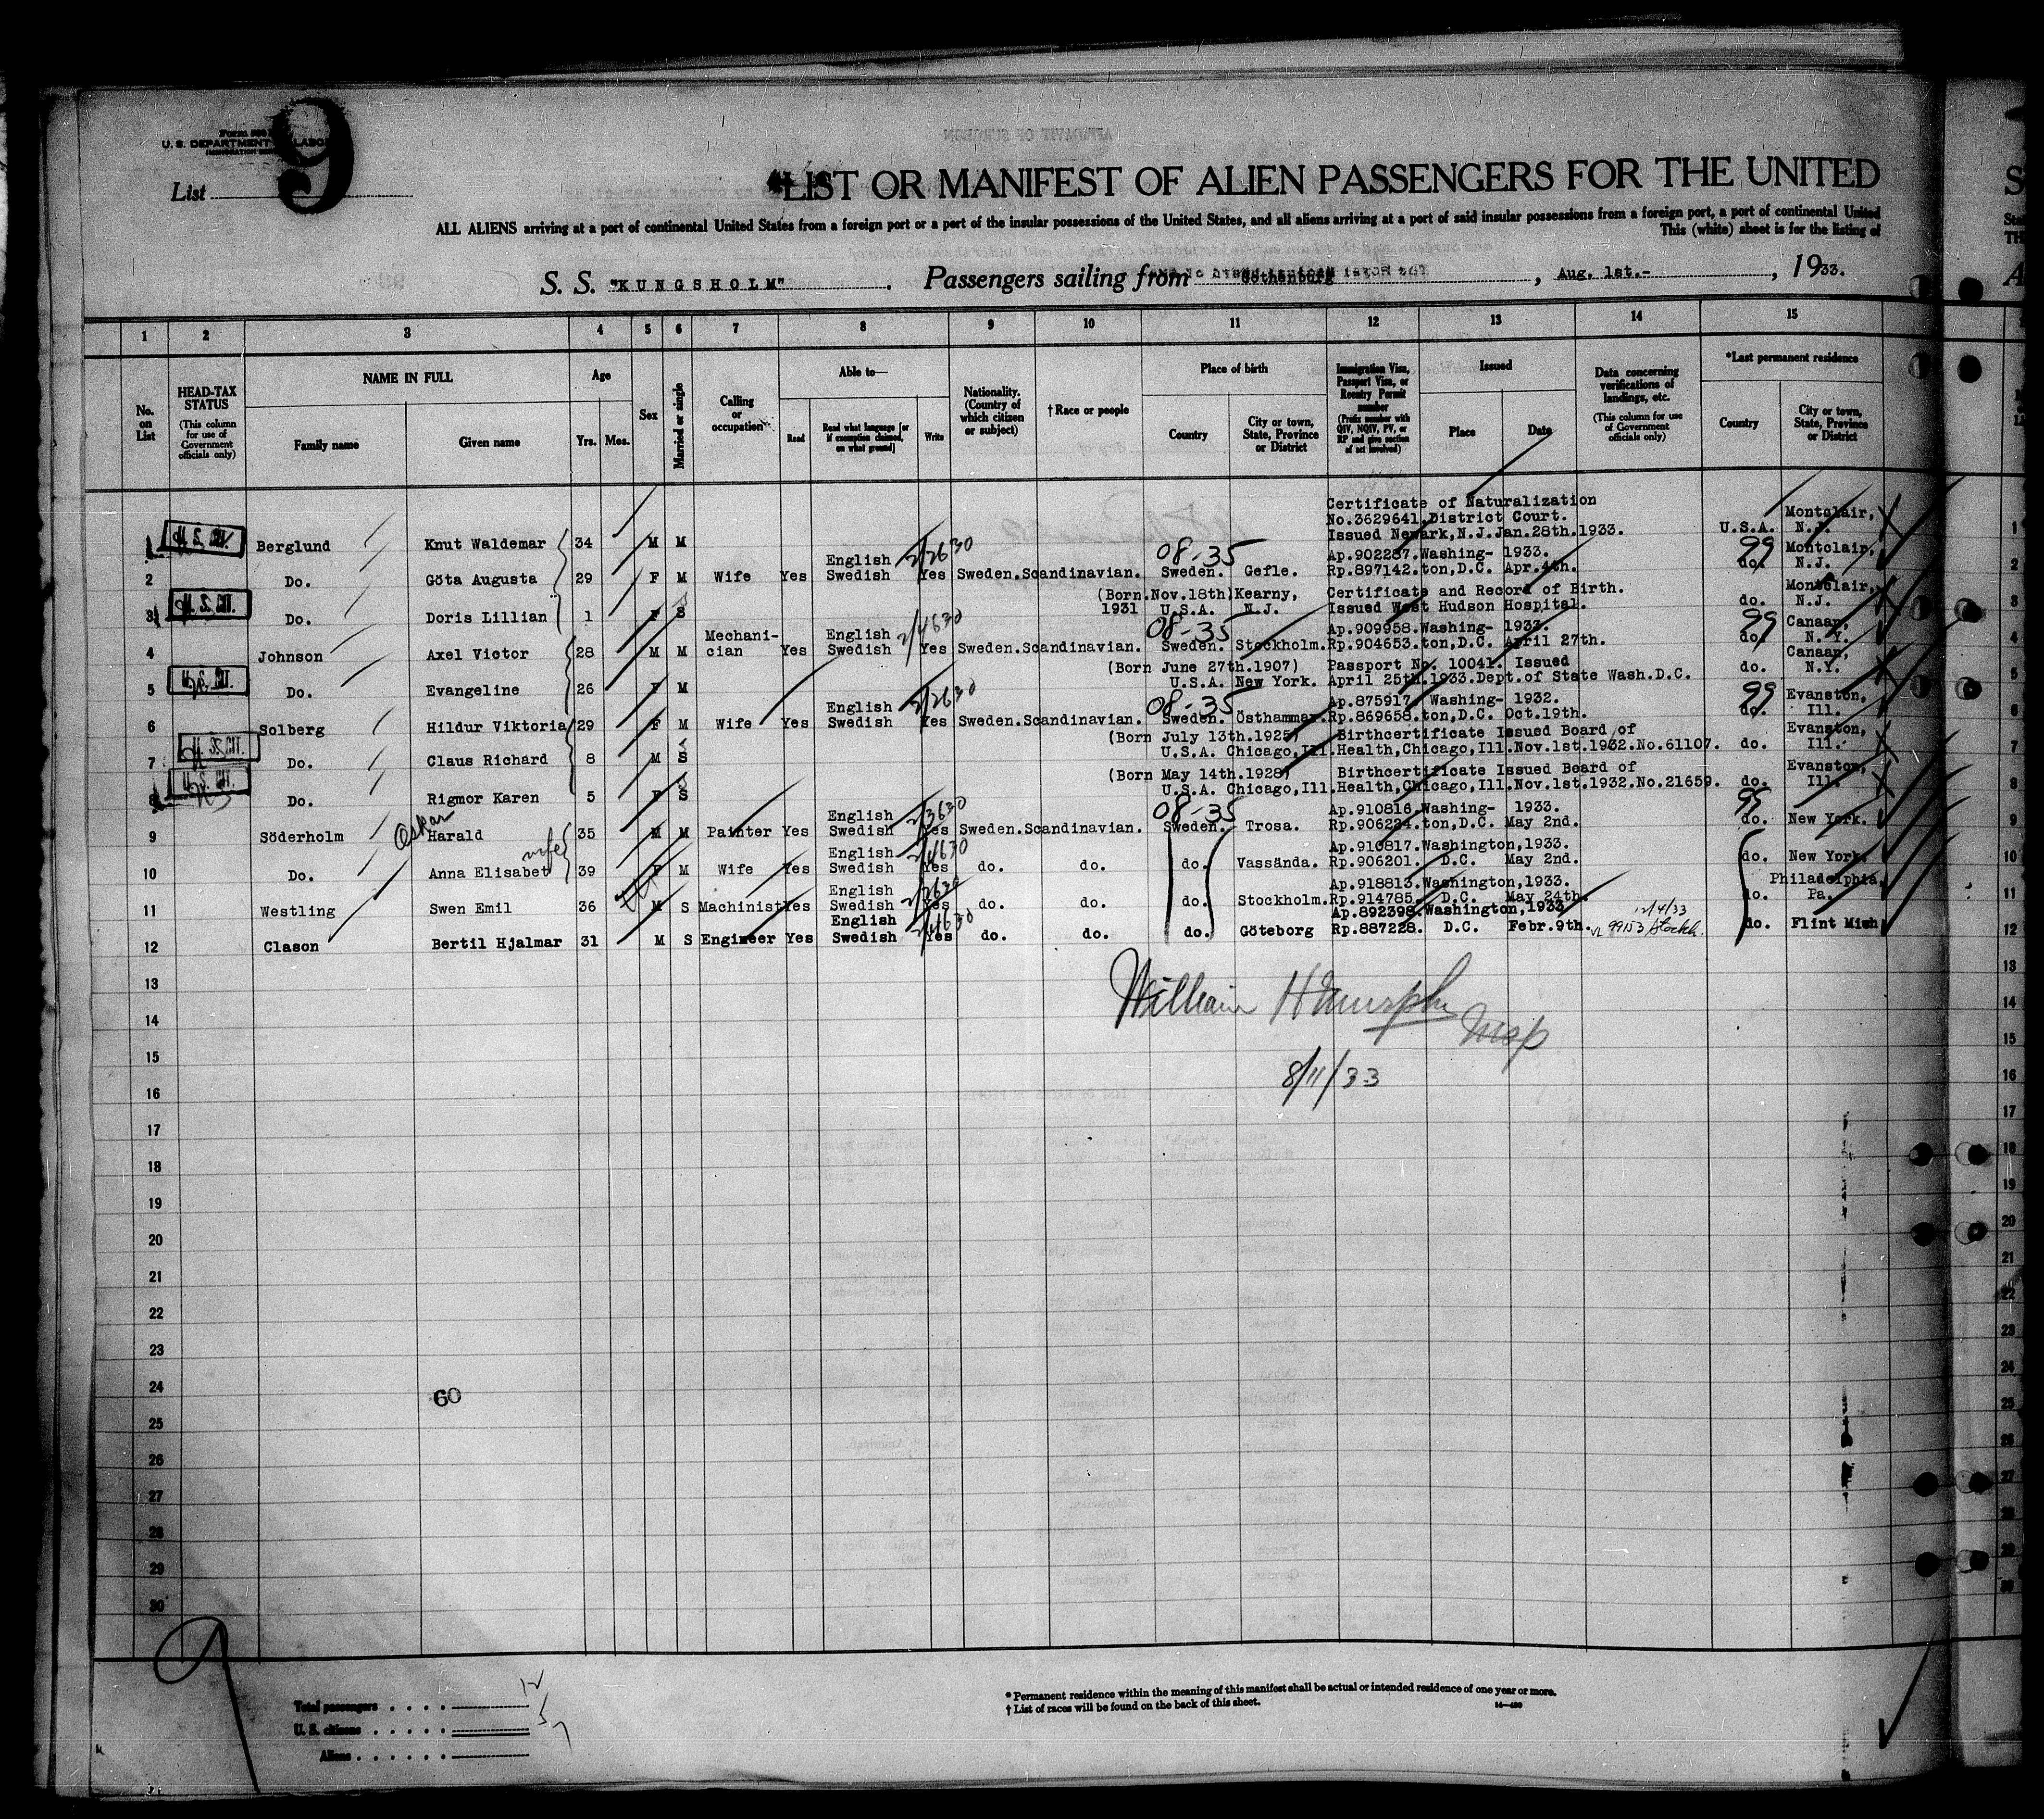 9
Form 500
U. S. DEPARTMENT OF LABOR
List
*LIST OR MANIFEST OF ALIEN PASSENGERS FOR THE UNITED
ALL ALIENS arriving at a port of continental United States from a foreign port or a port of the insular possessions of the United States, and all aliens arriving at a port of said insular possessions from a foreign port, a port of continental United
This (white) sheet is for the listing of
S. S. "KUNGSHOLM". Passengers sailing from Gothenburg, Aug. 1st.-, 1933.
1 2 3 4 5 6 7 8 9 10 11 12 13 14 15
No. on List
HEAD-TAX STATUS (This column for use of Government officials only)
NAME IN FULL
Family name
Given name
Age
Yrs. Mos.
Sex
Married or single
Calling or occupation
Able to—
Read
Read what language [or if exemption claimed, on what ground]
Write
Nationality. (Country of which citizen or subject)
† Race or people
Place of birth
Country
City or town, State, Province or District
Immigration Visa, Passport Visa, or Reentry Permit number (Prefix number with QIV, NQIV, PV, or RP and give section of act involved)
Issued
Place
Date
Data concerning verifications of landings, etc. (This column for use of Government officials only)
*Last permanent residence
Country
City or town, State, Province or District
Certificate of Naturalization
No.3629641.District Court.
1 U.S. CIT. Berglund Knut Waldemar 34 M M Issued Newark,N.J.Jan.28th.1933. U.S.A. Montclair, N.J. 1
English 2/2630 08-35 Ap.902287.Washing- 1933. 99 Montclair,
2 Do. Göta Augusta 29 F M Wife Yes Swedish Yes Sweden. Scandinavian. Sweden. Gefle. Rp.897142.ton,D.C. Apr.4th. do. N.J. 2
(Born.Nov.18th.Kearny, Certificate and Record of Birth. Montclair,
3 U.S. CIT. Do. Doris Lillian 1 F S 1931 U.S.A. N.J. Issued West Hudson Hospital. do. N.J. 3
Mechani- English 2/4630 08-35 Ap.909958.Washing- 1933. 99 Canaan,
4 Johnson Axel Victor 28 M M cian Yes Swedish Yes Sweden. Scandinavian. Sweden. Stockholm. Rp.904653.ton,D.C. April 27th. do. N.Y. 4
(Born June 27th.1907) Passport No. 10041. Issued Canaan,
5 U.S. CIT. Do. Evangeline 26 F M U.S.A. New York. April 25th.1933.Dept.of State Wash.D.C. do. N.Y. 5
English 2/2630 08-35 Ap.875917. Washing- 1932. 99 Evanston,
6 Solberg Hildur Viktoria 29 F M Wife Yes Swedish Yes Sweden. Scandinavian. Sweden. Östhammar. Rp.869658.ton,D.C. Oct.19th. do. Ill. 6
(Born July 13th.1925) Birthcertificate Issued Board of Evanston,
7 U.S. CIT. Do. Claus Richard 8 M S U.S.A. Chicago,Ill. Health,Chicago,Ill.Nov.1st.1932.No.61107. do. Ill. 7
(Born May 14th.1928) Birthcertificate Issued Board of Evanston,
8 U.S. CIT. Do. Rigmor Karen 5 F S U.S.A. Chicago,Ill. Health,Chicago,Ill.Nov.1st.1932.No.21659. do. Ill. 8
Oskar English 2/3630 08-35 Ap.910816.Washing- 1933. 99
9 Söderholm Harald 35 M M Painter Yes Swedish Yes Sweden. Scandinavian. Sweden. Trosa. Rp.906224.ton,D.C. May 2nd. do. New York. 9
wife English 2/4630 Ap.910817.Washington,1933.
10 Do. Anna Elisabet 39 F M Wife Yes Swedish Yes do. do. do. Vassända. Rp.906201. D.C. May 2nd. do. New York. 10
English 2/2630 Ap.918813.Washington,1933. Philadelphia,
11 Westling Swen Emil 36 M S Machinist Yes Swedish Yes do. do. do. Stockholm. Rp.914785. D.C. May 24th. do. Pa. 11
English 2/4630 Ap.892398.Washington,1933 12/4/33
12 Clason Bertil Hjalmar 31 M S Engineer Yes Swedish Yes do. do. do. Göteborg Rp.887228. D.C. Febr.9th. VL 99153/Stockh. do. Flint Mich 12
William H Murphy
Insp
8/11/33
13 13
14 14
15 15
16 16
17 17
18 18
19 19
20 20
21 21
22 22
23 23
24 60 24
25 25
26 26
27 27
28 28
29 29
30 30
9
Total passengers . . . . 12
U. S. citizens . . . . . 5
Aliens . . . . . . 7
* Permanent residence within the meaning of this manifest shall be actual or intended residence of one year or more.
† List of races will be found on the back of this sheet.
14—430